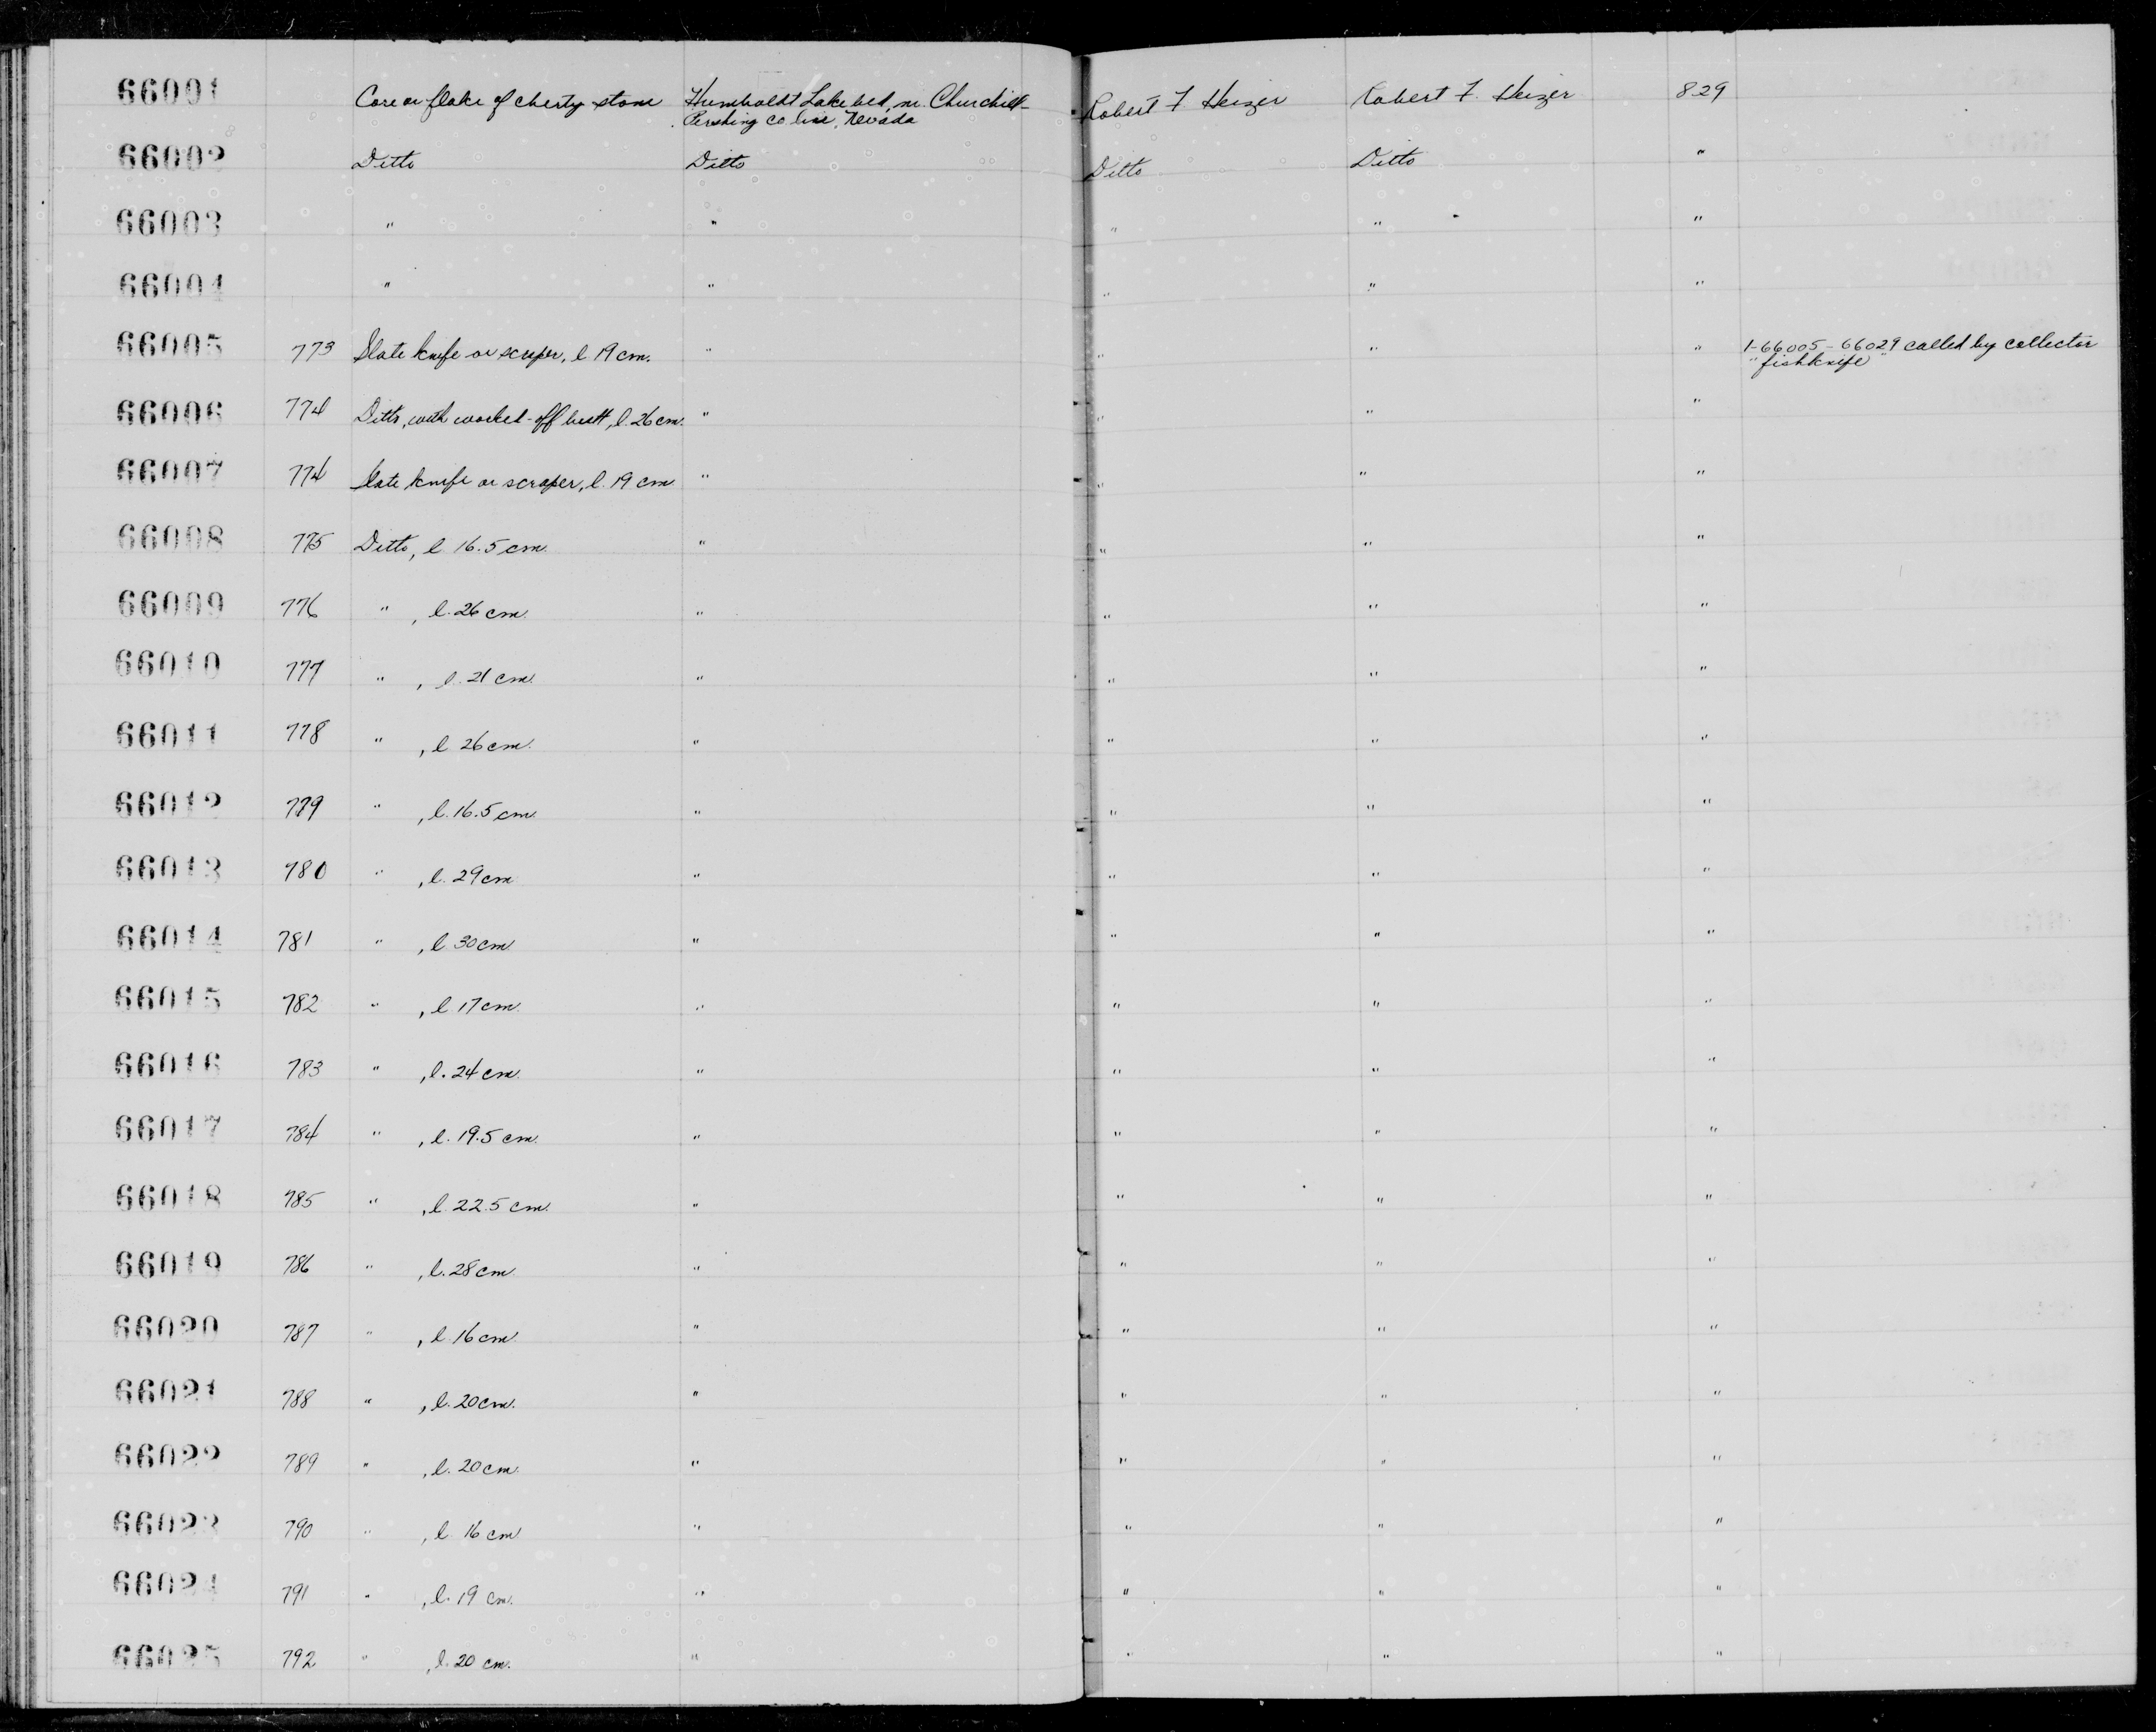 66001 Core or flake of cherty stone Humboldt Lake bed, nr. Churchill- Robert F. Heizer Robert F. Heizer 829
Pershing Co. line, Nevada
66002 Ditto Ditto Ditto Ditto "
66003 " " " " "
66004 " " " " "
66005 773 Slate knife or scraper, l. 19 cm. " " " " 1-66005-66029 called by collector
"fishknife"
66006 774 Ditto, with worked-off butt, l. 26 cm. " " " "
66007 774 Slate knife or scraper, l. 19 cm " " " "
66008 775 Ditto, l. 16.5 cm. " " " "
66009 776 " , l. 26 cm. " " " "
66010 777 " , l. 21 cm. " " " "
66011 778 " , l 26 cm. " " " "
66012 779 " , l. 16.5 cm. " " " "
66013 780 " , l. 29 cm " " " "
66014 781 " , l 30 cm. " " " "
66015 782 " , l 17 cm. " " " "
66016 783 " , l. 24 cm. " " " "
66017 784 " , l. 19.5 cm. " " " "
66018 785 " , l. 22.5 cm. " " " "
66019 786 " , l. 28 cm. " " " "
66020 787 " , l. 16 cm. " " " "
66021 788 " , l. 20 cm. " " " "
66022 789 " , l. 20 cm. " " " "
66023 790 " , l. 16 cm " " " "
66024 791 " , l. 19 cm. " " " "
66025 792 " , l. 20 cm. " " " "